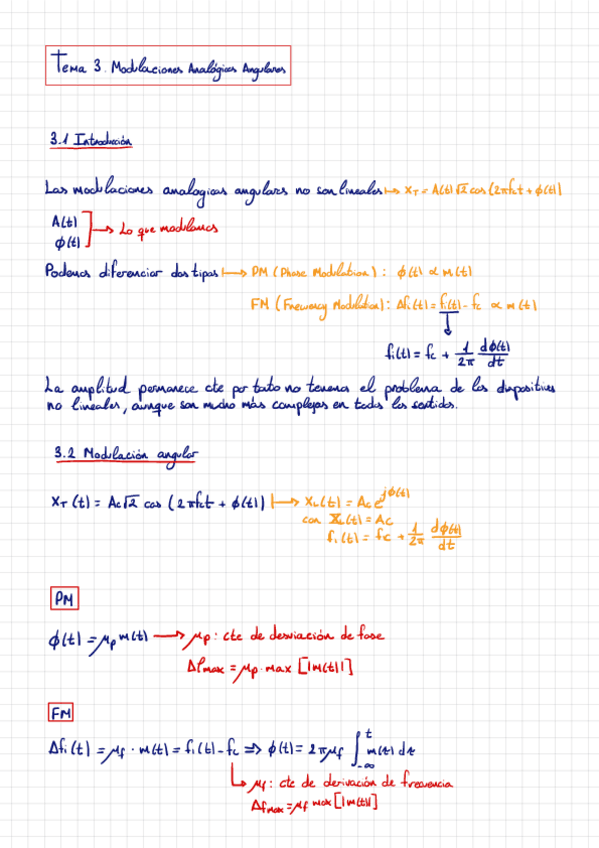 Tema 3. Modulaciones Analógicas Angulares
3.1 Introducción
Las modulaciones analogicas angulares no son lineales ↦ x_T = A(t) √2 cos (2πfct + ϕ(t))
A(t)
ϕ(t) → Lo que modulamos
Podemos diferenciar dos tipos ↦ PM (Phase Modulation): ϕ(t) ∝ m(t)
FM (Frewency Modulation): Δfi(t) = fi(t) - fc ∝ m(t)
fi(t) = fc + 1/2π dϕ(t)/dt
La amplitud permanece cte por tato no tenemos el problema de los dispositivos
no lineales, aunque son mucho más complejas en todos los sentidos.
3.2 Modulación angular
x_T (t) = Ac√2 cos (2πfct + ϕ(t)) ↦ x_L(t) = Ac e^jϕ(t)
con x_L(t) = Ac
fi(t) = fc + 1/2π dϕ(t)/dt
PM
ϕ(t) = μp m(t) → μp: cte de desviación de fase
Δϕmax = μp · max [|m(t)|]
FM
Δfi(t) = μf · m(t) = fi(t) - fc ⇒ ϕ(t) = 2πμf ∫_-∞^t m(t) dt
μf: cte de derivación de frecuencia
Δfmax = μf max [|m(t)|]